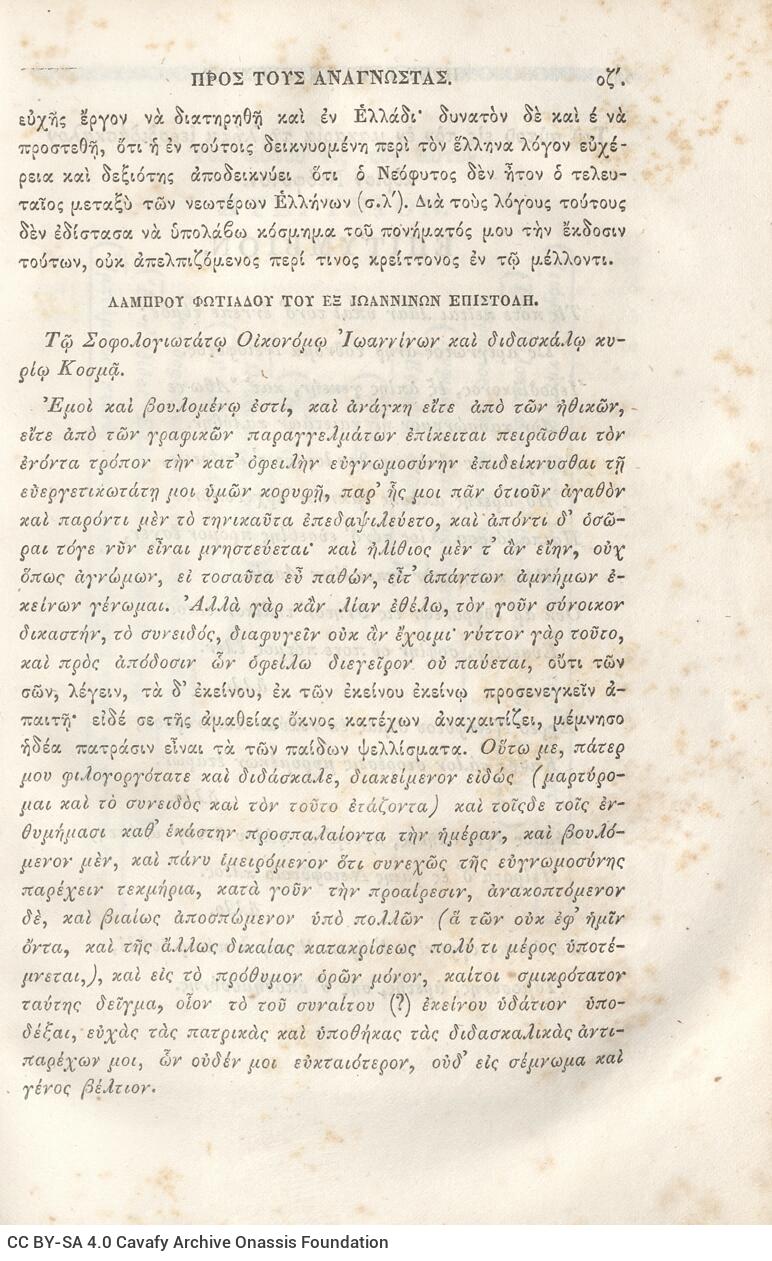 ΠΡΟΣ ΤΟΥΣ ΑΝΑΓΝΩΣΤΑΣ. οζʹ.
εὐχῆς ἔργον νὰ διατηρηθῇ καὶ ἐν Ἑλλάδι· δυνατὸν δὲ καὶ έ νὰ
προστεθῇ, ὅτι ἡ ἐν τούτοις δεικνυομένη περὶ τὸν ἕλληνα λόγον εὐχέ-
ρεια καὶ δεξιότης ἀποδεικνύει ὅτι ὁ Νεόφυτος δὲν ἦτον ὁ τελευ-
ταῖος μεταξὺ τῶν νεωτέρων Ἑλλήνων (σ.λʹ). Διὰ τοὺς λόγους τούτους
δὲν ἐδίστασα νὰ ὑπολάβω κόσμημα τοῦ πονήματός μου τὴν ἔκδοσιν
τούτων, οὐκ ἀπελπιζόμενος περί τινος κρείττονος ἐν τῷ μέλλοντι.
ΛΑΜΠΡΟΥ ΦΩΤΙΑΔΟΥ ΤΟΥ ΕΞ ΙΩΑΝΝΙΝΩΝ ΕΠΙΣΤΟΛΗ.
Τῷ Σοφολογιωτάτῳ Οἰκονόμῳ Ἰωαννίνων καὶ διδασκάλῳ κυ-
ρίῳ Κοσμᾷ.
Ἐμοὶ καὶ βουλομένῳ ἐστί, καὶ ἀνάγκη εἴτε ἀπὸ τῶν ἠθικῶν,
εἴτε ἀπὸ τῶν γραφικῶν παραγγελμάτων ἐπίκειται πειρᾶσθαι τὸν
ἐνόντα τρόπον τὴν κατ' ὀφειλὴν εὐγνωμοσύνην ἐπιδείκνυσθαι τῇ
εὐεργετικωτάτῃ μοι ὑμῶν κορυφῇ, παρ' ἧς μοι πᾶν ὁτιοῦν ἀγαθὸν
καὶ παρόντι μὲν τὸ τηνικαῦτα ἐπεδαψιλεύετο, καὶ ἀπόντι δ' ὁσῶ-
ραι τόγε νῦν εἶναι μνηστεύεται· καὶ ἠλίθιος μὲν τ' ἂν εἴην, οὐχ
ὅπως ἀγνώμων, εἰ τοσαῦτα εὖ παθών, εἶτ' ἁπάντων ἀμνήμων ἐ-
κείνων γένωμαι. Ἀλλὰ γὰρ κἂν λίαν ἐθέλω, τὸν γοῦν σύνοικον
δικαστήν, τὸ συνειδός, διαφυγεῖν οὐκ ἂν ἔχοιμι· νύττον γὰρ τοῦτο,
καὶ πρὸς ἀπόδοσιν ὧν ὀφείλω διεγεῖρον οὐ παύεται, οὔτι τῶν
σῶν, λέγειν, τὰ δ' ἐκείνου, ἐκ τῶν ἐκείνου ἐκείνῳ προσενεγκεῖν ἀ-
παιτῇ· εἰδέ σε τῆς ἀμαθείας ὄκνος κατέχων ἀναχαιτίζει, μέμνησο
ἡδέα πατράσιν εἶναι τὰ τῶν παίδων ψελλίσματα. Οὕτω με, πάτερ
μου φιλογοργότατε καὶ διδάσκαλε, διακείμενον εἰδώς (μαρτύρο-
μαι καὶ τὸ συνειδὸς καὶ τὸν τοῦτο ἐτάζοντα) καὶ τοῖςδε τοῖς ἐν-
θυμήμασι καθ' ἑκάστην προσπαλαίοντα τὴν ἡμέραν, καὶ βουλό-
μενον μὲν, καὶ πάνυ ἱμειρόμενον ὅτι συνεχῶς τῆς εὐγνωμοσύνης
παρέχειν τεκμήρια, κατὰ γοῦν τὴν προαίρεσιν, ἀνακοπτόμενον
δὲ, καὶ βιαίως ἀποσπώμενον ὑπὸ πολλῶν (ἃ τῶν οὐκ ἐφ' ἡμῖν
ὄντα, καὶ τῆς ἄλλως δικαίας κατακρίσεως πολύ τι μέρος ὑποτέ-
μνεται,), καὶ εἰς τὸ πρόθυμον ὁρῶν μόνον, καίτοι σμικρότατον
ταύτης δεῖγμα, οἷον τὸ τοῦ συναίτου (?) ἐκείνου ὑδάτιον ὑπο-
δέξαι, εὐχὰς τὰς πατρικὰς καὶ ὑποθήκας τὰς διδασκαλικὰς ἀντι-
παρέχων μοι, ὧν οὐδέν μοι εὐκταιότερον, οὐδ' εἰς σέμνωμα καὶ
γένος βέλτιον.
CC BY-SA 4.0 Cavafy Archive Onassis Foundation